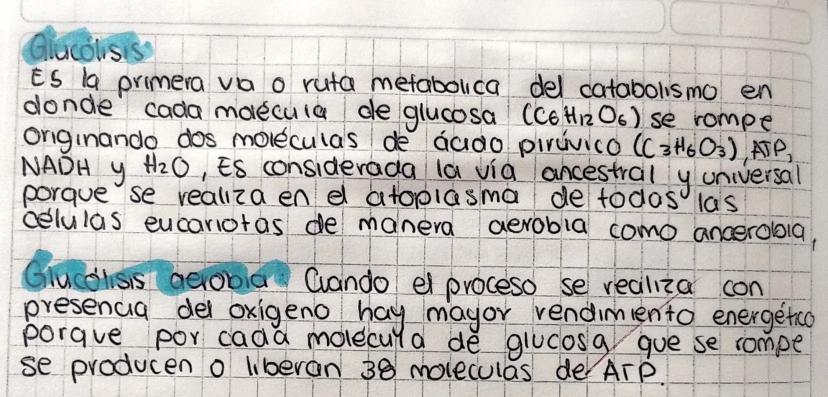 Glucólisis
Es la primera vía o ruta metabolica del catabolismo en
donde cada molécula de glucosa (C6H12O6) se rompe
Originando dos moléculas de ácido pirúvico (C3H6O3), ATP,
NADH y H2O, Es considerada la vía ancestral y universal
porque se realiza en el citoplasma de todas las
células eucariotas de manera aerobia como anaerobia,
Glucólisis aerobia: Cuando el proceso se realiza con
presencia del oxígeno hay mayor rendimiento energético
porque por cada molécula de glucosa que se rompe
se producen o liberan 38 moleculas de ATP.